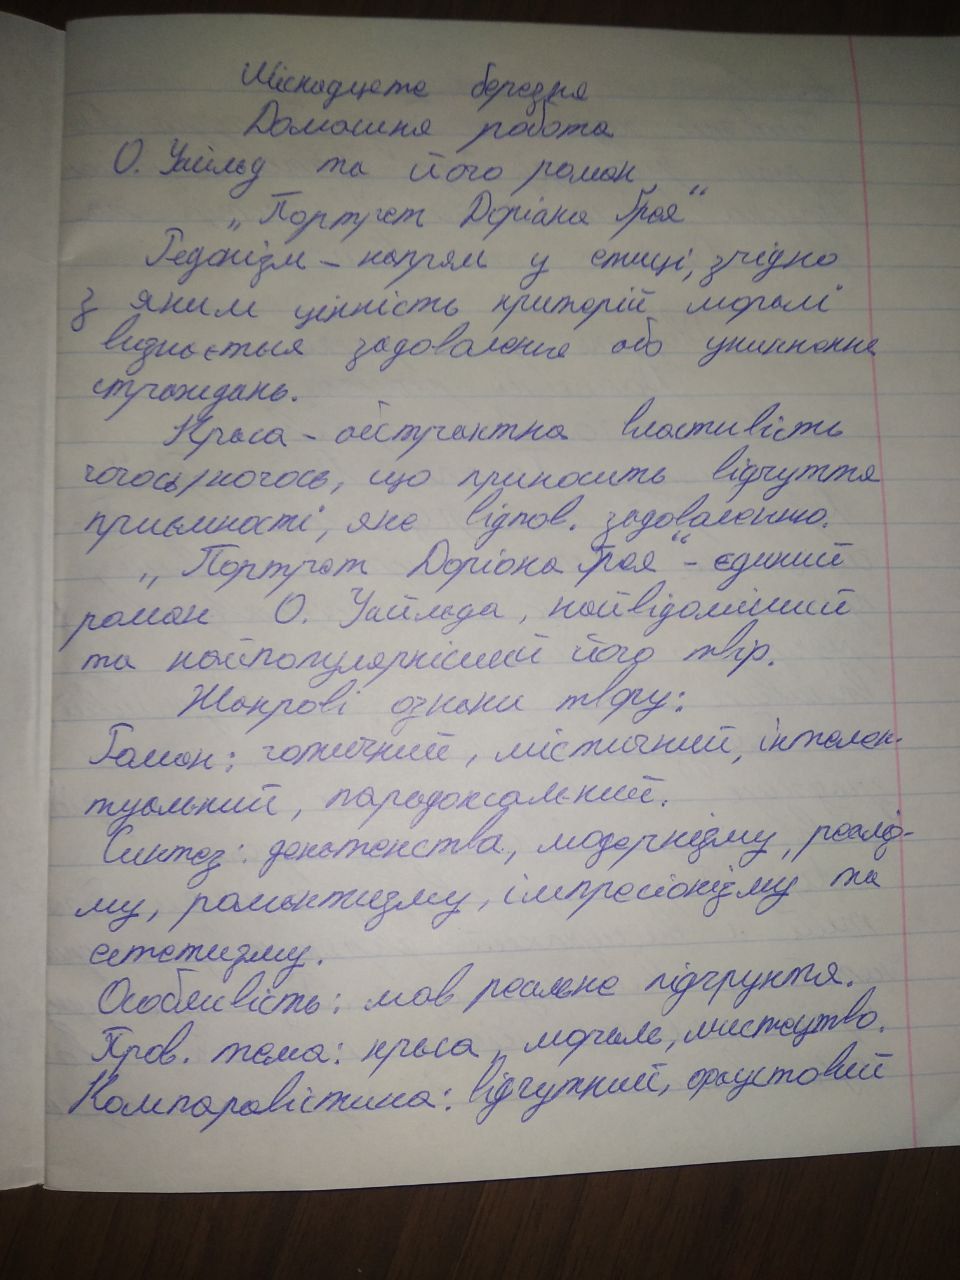 Шіснадцяте березня
Домашня робота
О. Уайльд та його роман
„Портрет Доріана Грея“
Гедонізм – напрям у етиці, згідно
з яким цінність критерій моралі
визнається задоволення або уникнення
страждань.
Краса – абстрактна властивість
чогось/когось, що приносить відчуття
приємності, яке відпов. задоволенню.
„Портрет Доріана Грея“ – єдиний
роман О. Уайльда, найвідоміший
та найпопулярніший його твір.
Жанрові ознаки твору:
Роман: готичний, містичний, інтелек-
туальний, парадоксальний.
Синтез: декаденства, модернізму, реаліз-
му, романтизму, імпресіонізму та
естетизму.
Особливість: мав реальне підґрунтя.
Пров. тема: краса, мораль, мистецтво.
Компаравістика: відчутний, фаустовий